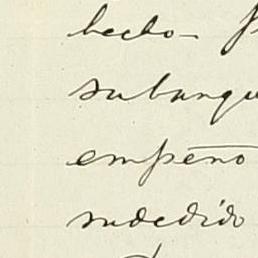 hecho-
su banqu
empeño
sudedido